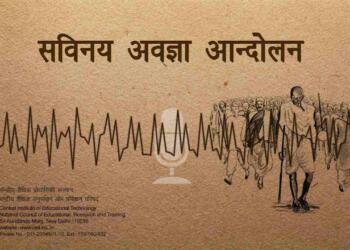 सविनय अवज्ञा आन्दोलन
केन्द्रीय शैक्षिक प्रौद्योगिकी संस्थान
राष्ट्रीय शैक्षिक अनुसंधान और प्रशिक्षण परिषद्
Central Institute of Educational Technology
National Council of Educational Research and Training
Sri Aurobindo Marg, New Delhi
website: www.ciet.nic.in
Phone No.: